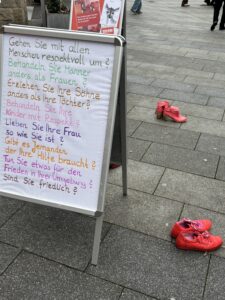 Gehen Sie mit allen
Menschen respektvoll um?
Behandeln Sie Männer
anders als Frauen?
Erziehen Sie Ihre Söhne
anders als Ihre Töchter?
Behandeln Sie Ihre
Kinder mit Respekt?
Lieben Sie Ihre Frau
so wie Sie ist?
Gibt es jemanden
der Ihre Hilfe braucht?
Tun Sie etwas für den
Frieden in Ihrer Umgebung?
Sind Sie friedlich?